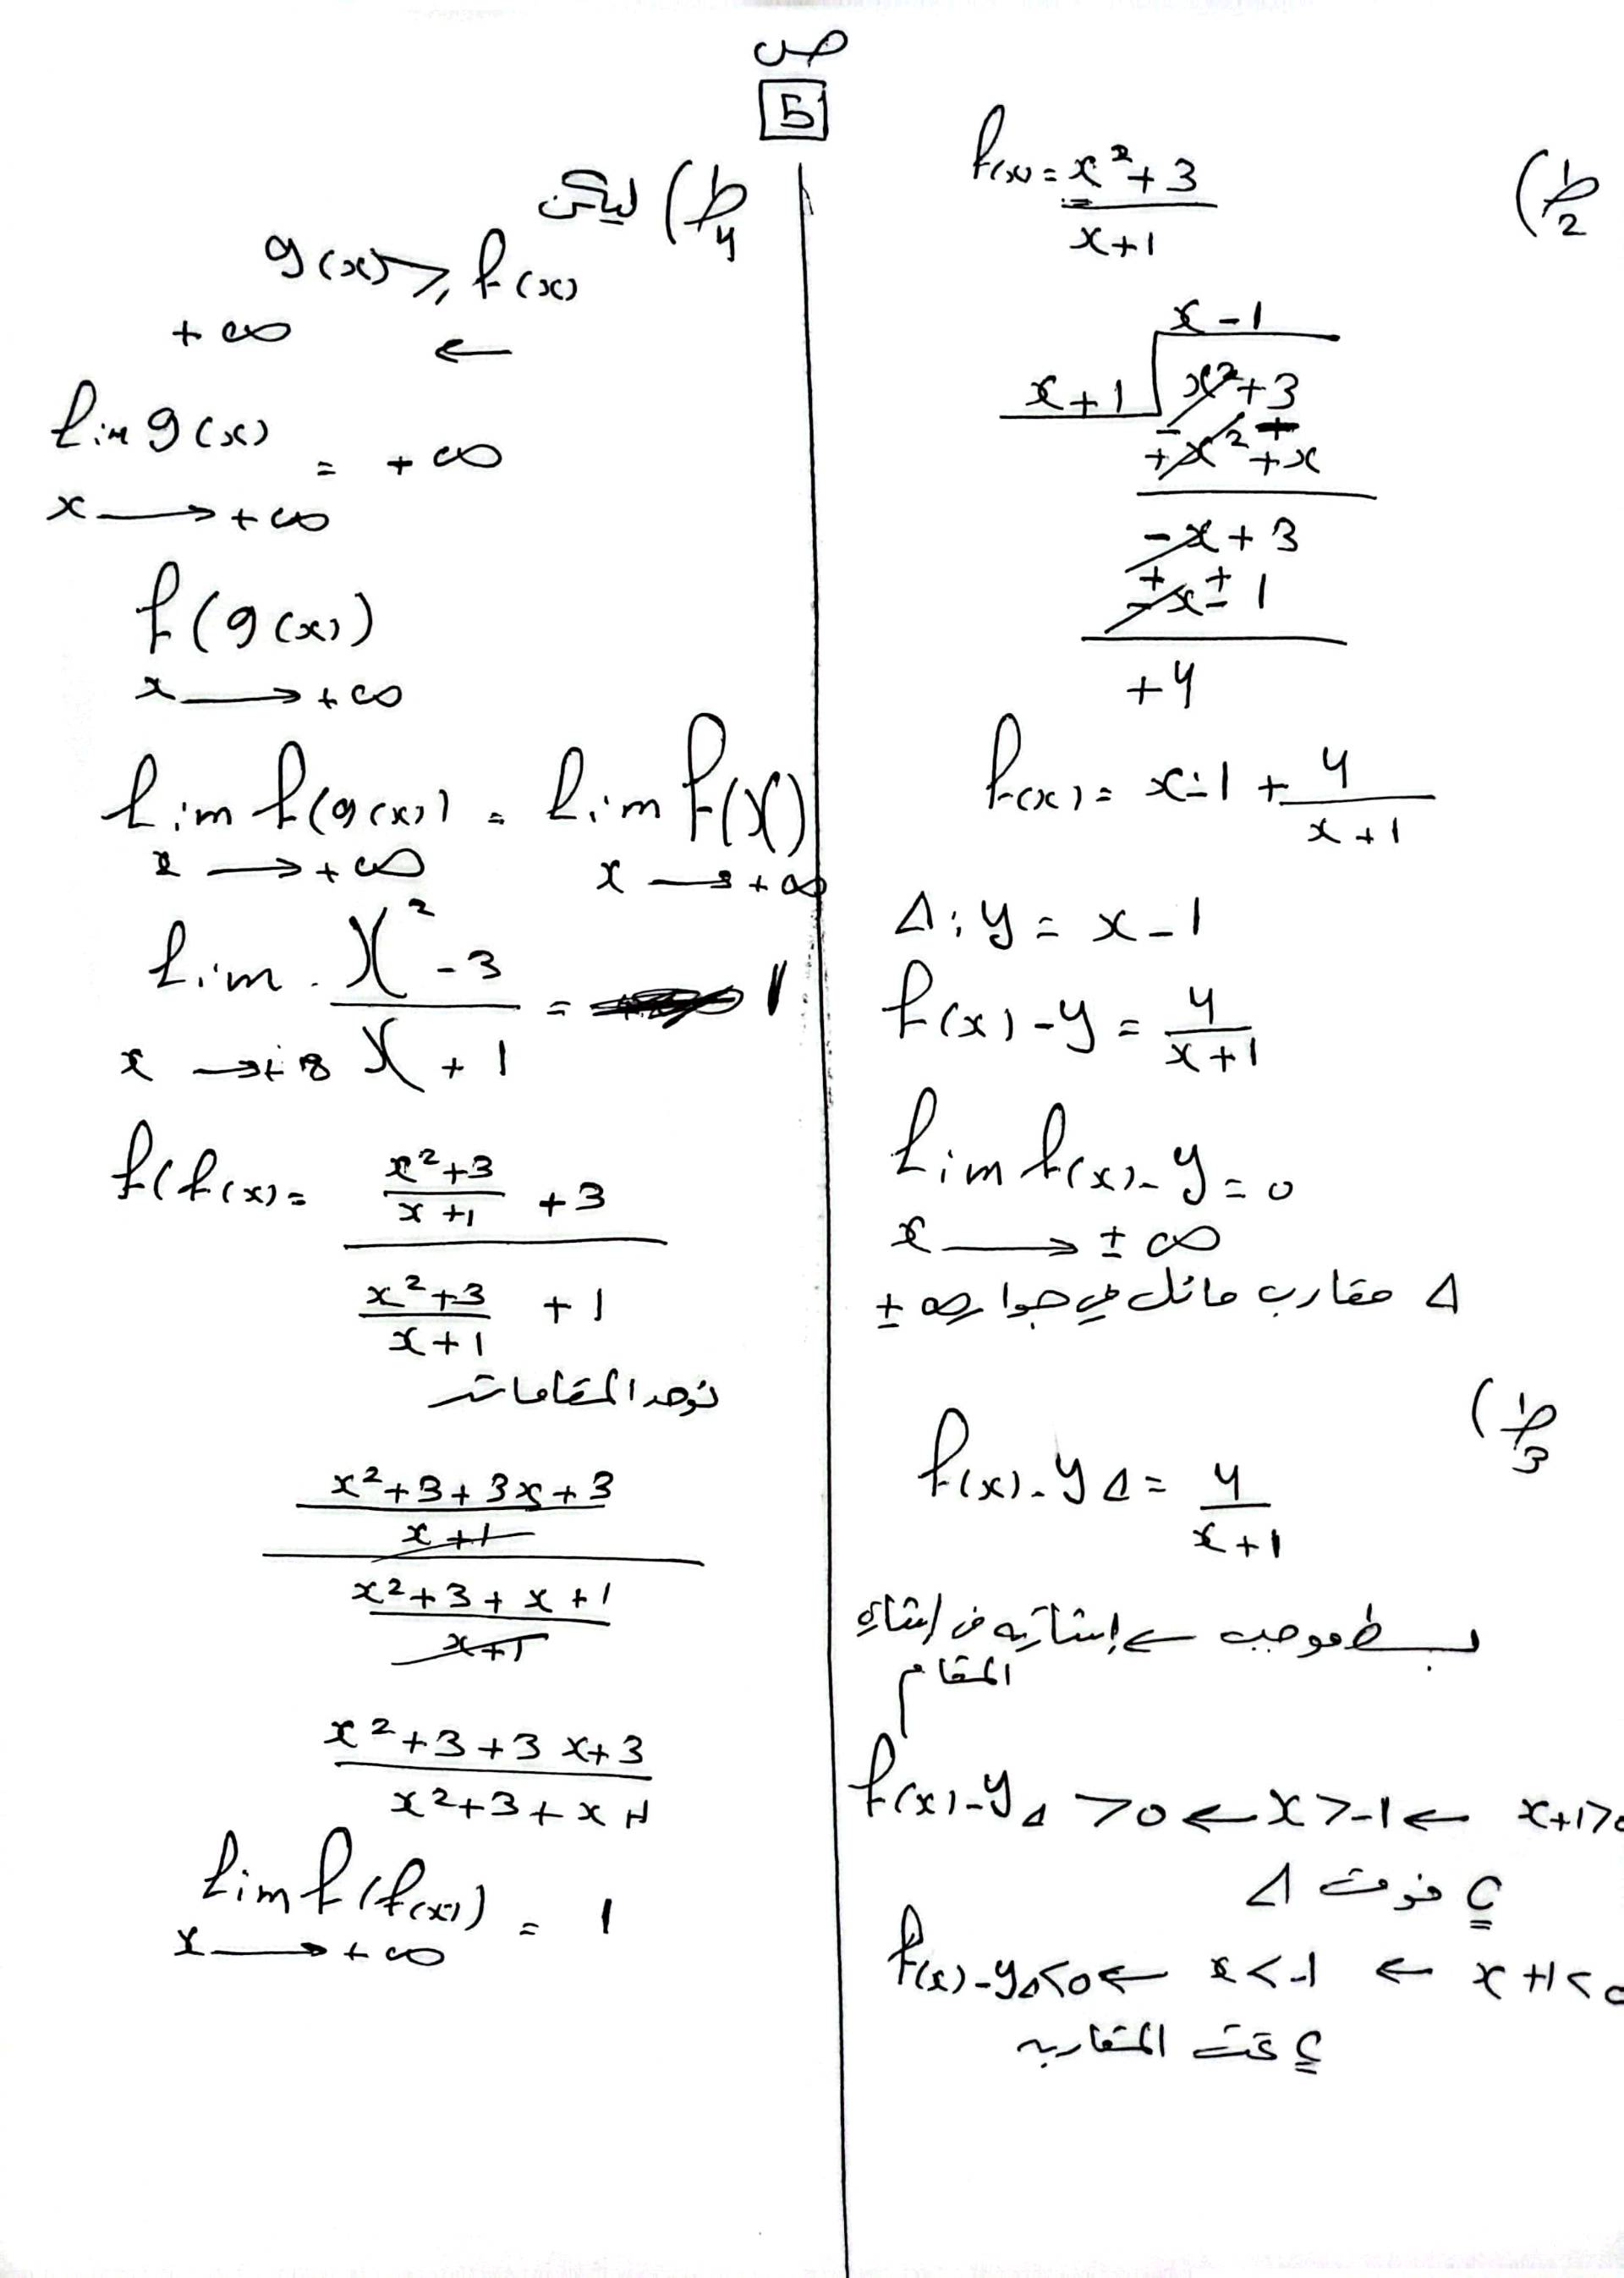 ص
5
ط2)
f(x) = x² + 3 / x + 1
x - 1
x + 1 | x² + 3
+x² + x
- +
-x + 3
+ +
-x - 1
+4
f(x) = x - 1 + 4 / x + 1
Δ: y = x - 1
f(x) - y = 4 / x + 1
lim f(x) - y = 0
x → ± ∞
Δ مقارب مائل في جوار ∞ ±
ط3)
f(x) - yΔ = 4 / x + 1
بسط موجب ← إشارته من إشارة
المقام
x + 1 > 0 ← x > -1 ← f(x) - yΔ > 0
C فوق Δ
x + 1 < 0 ← x < -1 ← f(x) - yΔ < 0
C تحت المقارب
ط4) ليكن
g(x) ≥ f(x)
+ ∞ ←
lim g(x) = + ∞
x → + ∞
f(g(x))
x → + ∞
lim f(g(x)) = lim f(X)
x → + ∞ x → + ∞
lim X² - 3 / X + 1 = 1
x → + ∞
f(f(x) = x² + 3 / x + 1 + 3
x² + 3 / x + 1 + 1
نوحد المقامات
x² + 3 + 3x + 3
x + 1
x² + 3 + x + 1
x + 1
x² + 3 + 3x + 3
x² + 3 + x + 1
lim f(f(x)) = 1
x → + ∞